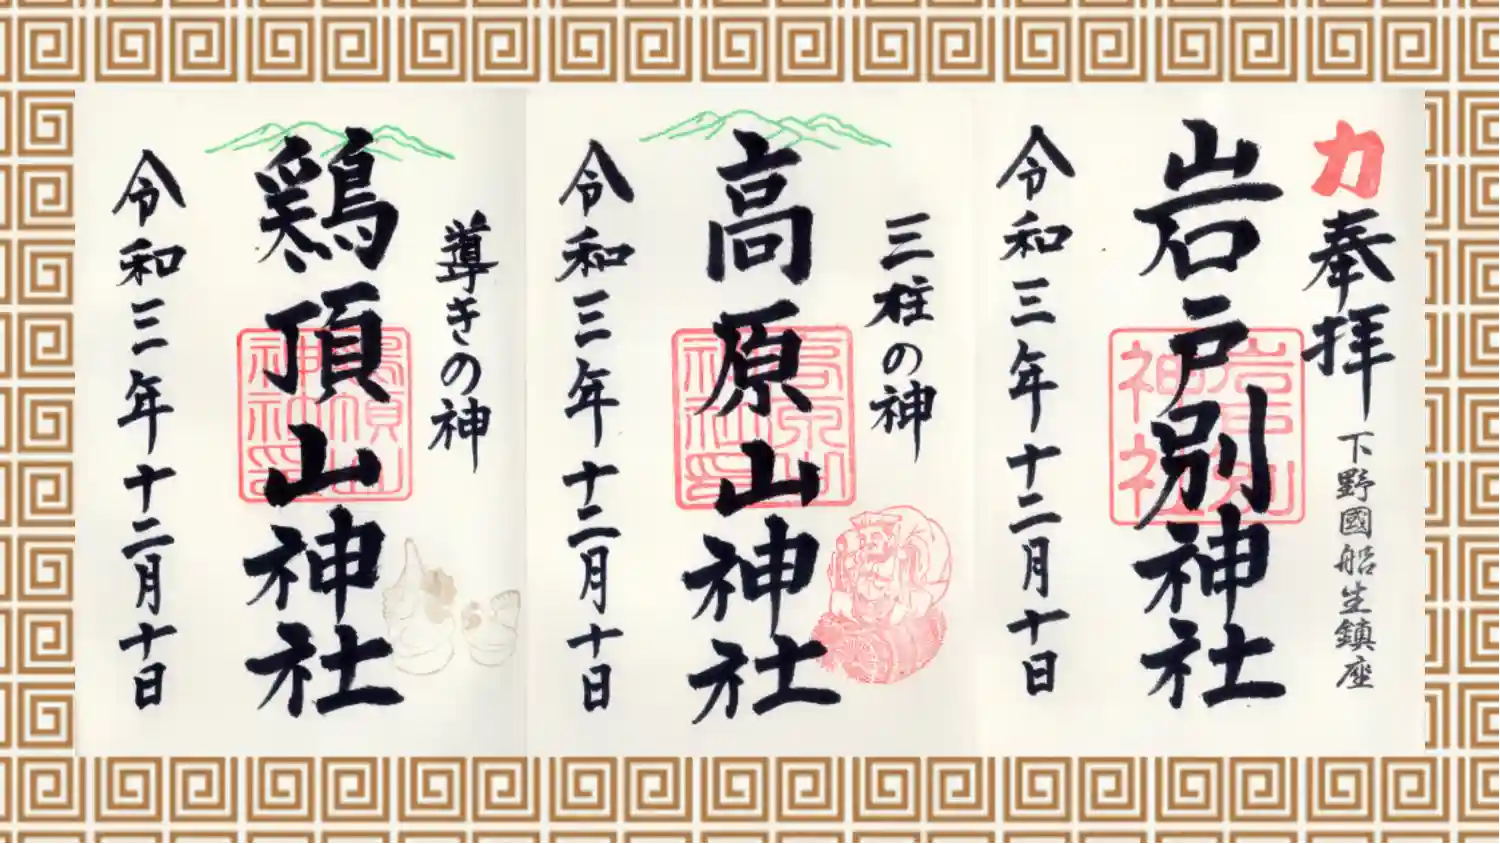 力
奉拝
下野國船生鎮座
岩戸別神社
岩戸別神社
令和三年十二月十日
三柱の神
高原山神社
高原山神社印
令和三年十二月十日
導きの神
鶏頂山神社
鶏頂山神社印
令和三年十二月十日